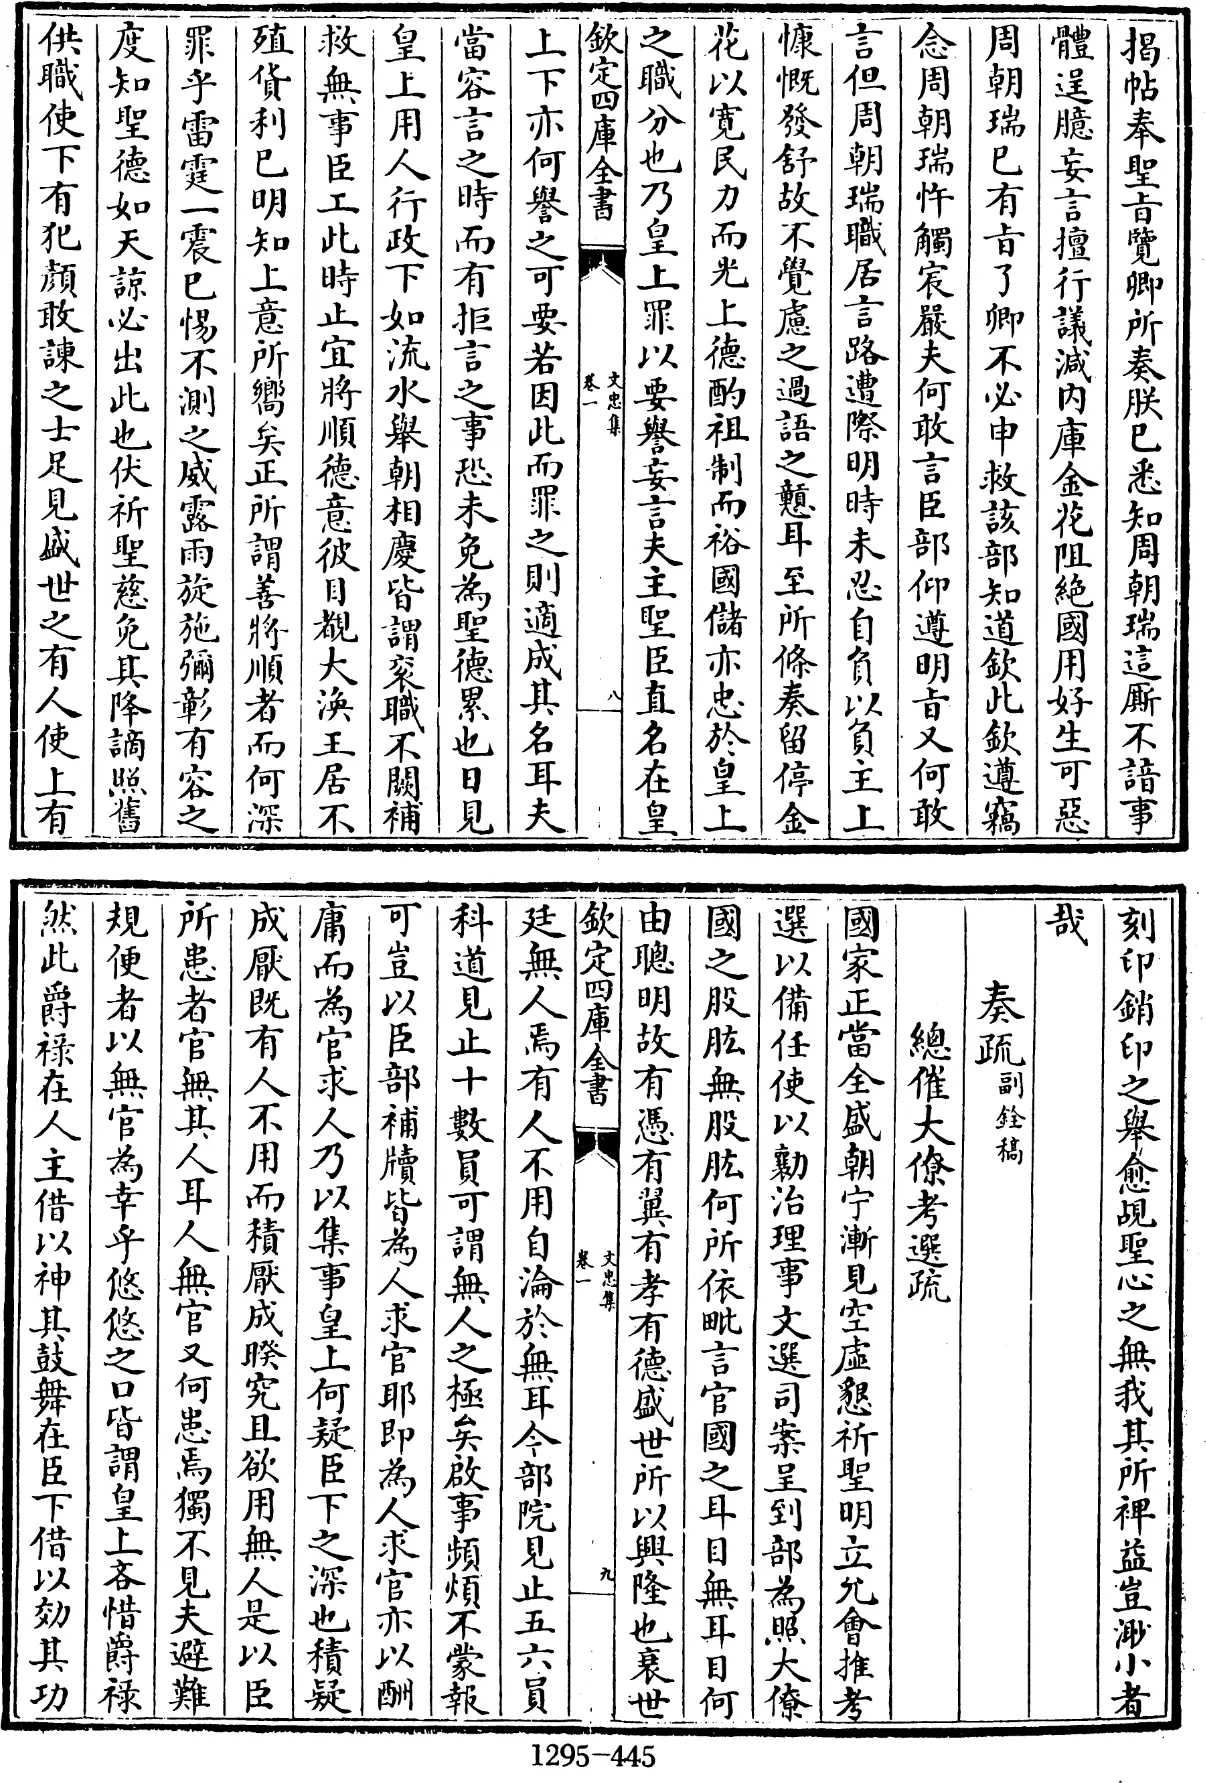 揭帖奉聖旨覽卿所奏朕已悉知周朝瑞這厮不諳事
體逞臆妄言擅行議減内庫金花阻絶國用好生可惡
周朝瑞已有旨了卿不必申救該部知道欽此欽遵竊
念周朝瑞忤觸宸嚴夫何敢言臣部仰遵明旨又何敢
言但周朝瑞職居言路遭際明時未忍自負以負主上
慷慨發舒故不覺慮之過語之戅耳至所條奏留停金
花以寛民力而光上德酌祖制而裕國儲亦忠於皇上
之職分也乃皇上罪以要譽妄言夫主聖臣直名在皇
欽定四庫全書
文忠集
卷一
八
上下亦何譽之可要若因此而罪之則適成其名耳夫
當容言之時而有拒言之事恐未免為聖德累也日見
皇上用人行政下如流水舉朝相慶皆謂衮職不闕補
救無事臣工此時止宜將順德意彼目覩大渙王居不
殖貨利已明知上意所嚮矣正所謂善將順者而何深
罪乎雷霆一震已惕不測之威露雨旋施彌彰有容之
度知聖德如天諒必出此也伏祈聖慈免其降謫照舊
供職使下有犯顔敢諫之士足見盛世之有人使上有
刻印銷印之舉愈覘聖心之無我其所裨益豈渺小者
哉
奏疏副銓稿
總催大僚考選疏
國家正當全盛朝宁漸見空虛懇祈聖明立允會推考
選以備任使以勷治理事文選司案呈到部為照大僚
國之股肱無股肱何所依毗言官國之耳目無耳目何
由聰明故有憑有翼有孝有德盛世所以興隆也衰世
欽定四庫全書
文忠集
卷一
九
廷無人焉有人不用自淪於無耳今部院見止五六員
科道見止十數員可謂無人之極矣啟事頻煩不蒙報
可豈以臣部補牘皆為人求官耶即為人求官亦以酬
庸而為官求人乃以集事皇上何疑臣下之深也積疑
成厭既有人不用而積厭成暌究且欲用無人是以臣
所患者官無其人耳人無官又何患焉獨不見夫避難
規便者以無官為幸乎悠悠之口皆謂皇上吝惜爵禄
然此爵禄在人主借以神其鼓舞在臣下借以効其功
1295-445